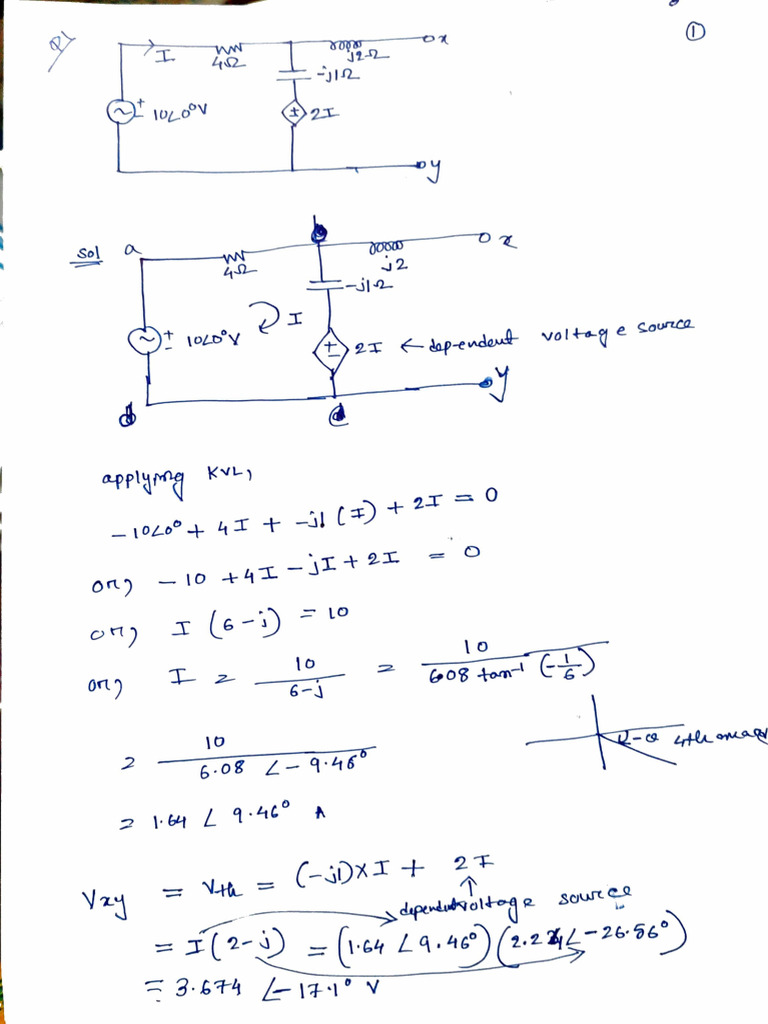 ①
Q1
I
4Ω
j2Ω
x
-j1Ω
+
10∠0°V
±
2I
y
Sol
a
b
4Ω
j2
x
-j1Ω
I
+
-
10∠0°V
±
2I ← dependent voltage source
y
d
c
applying KVL,
-10∠0° + 4I + -j1 (I) + 2I = 0
or, -10 + 4I - jI + 2I = 0
or, I (6-j) = 10
or, I = 10/(6-j) = 10/(6.08 tan⁻¹ (-1/6))
= 10/(6.08 ∠-9.46°)
4th
= 1.64 ∠ 9.46° A
Vxy = Vth = (-j1)×I + 2I
↑
dependent voltage source
= I(2-j) = (1.64 ∠9.46°)(2.24∠-26.56°)
= 3.674 ∠-17.1° V